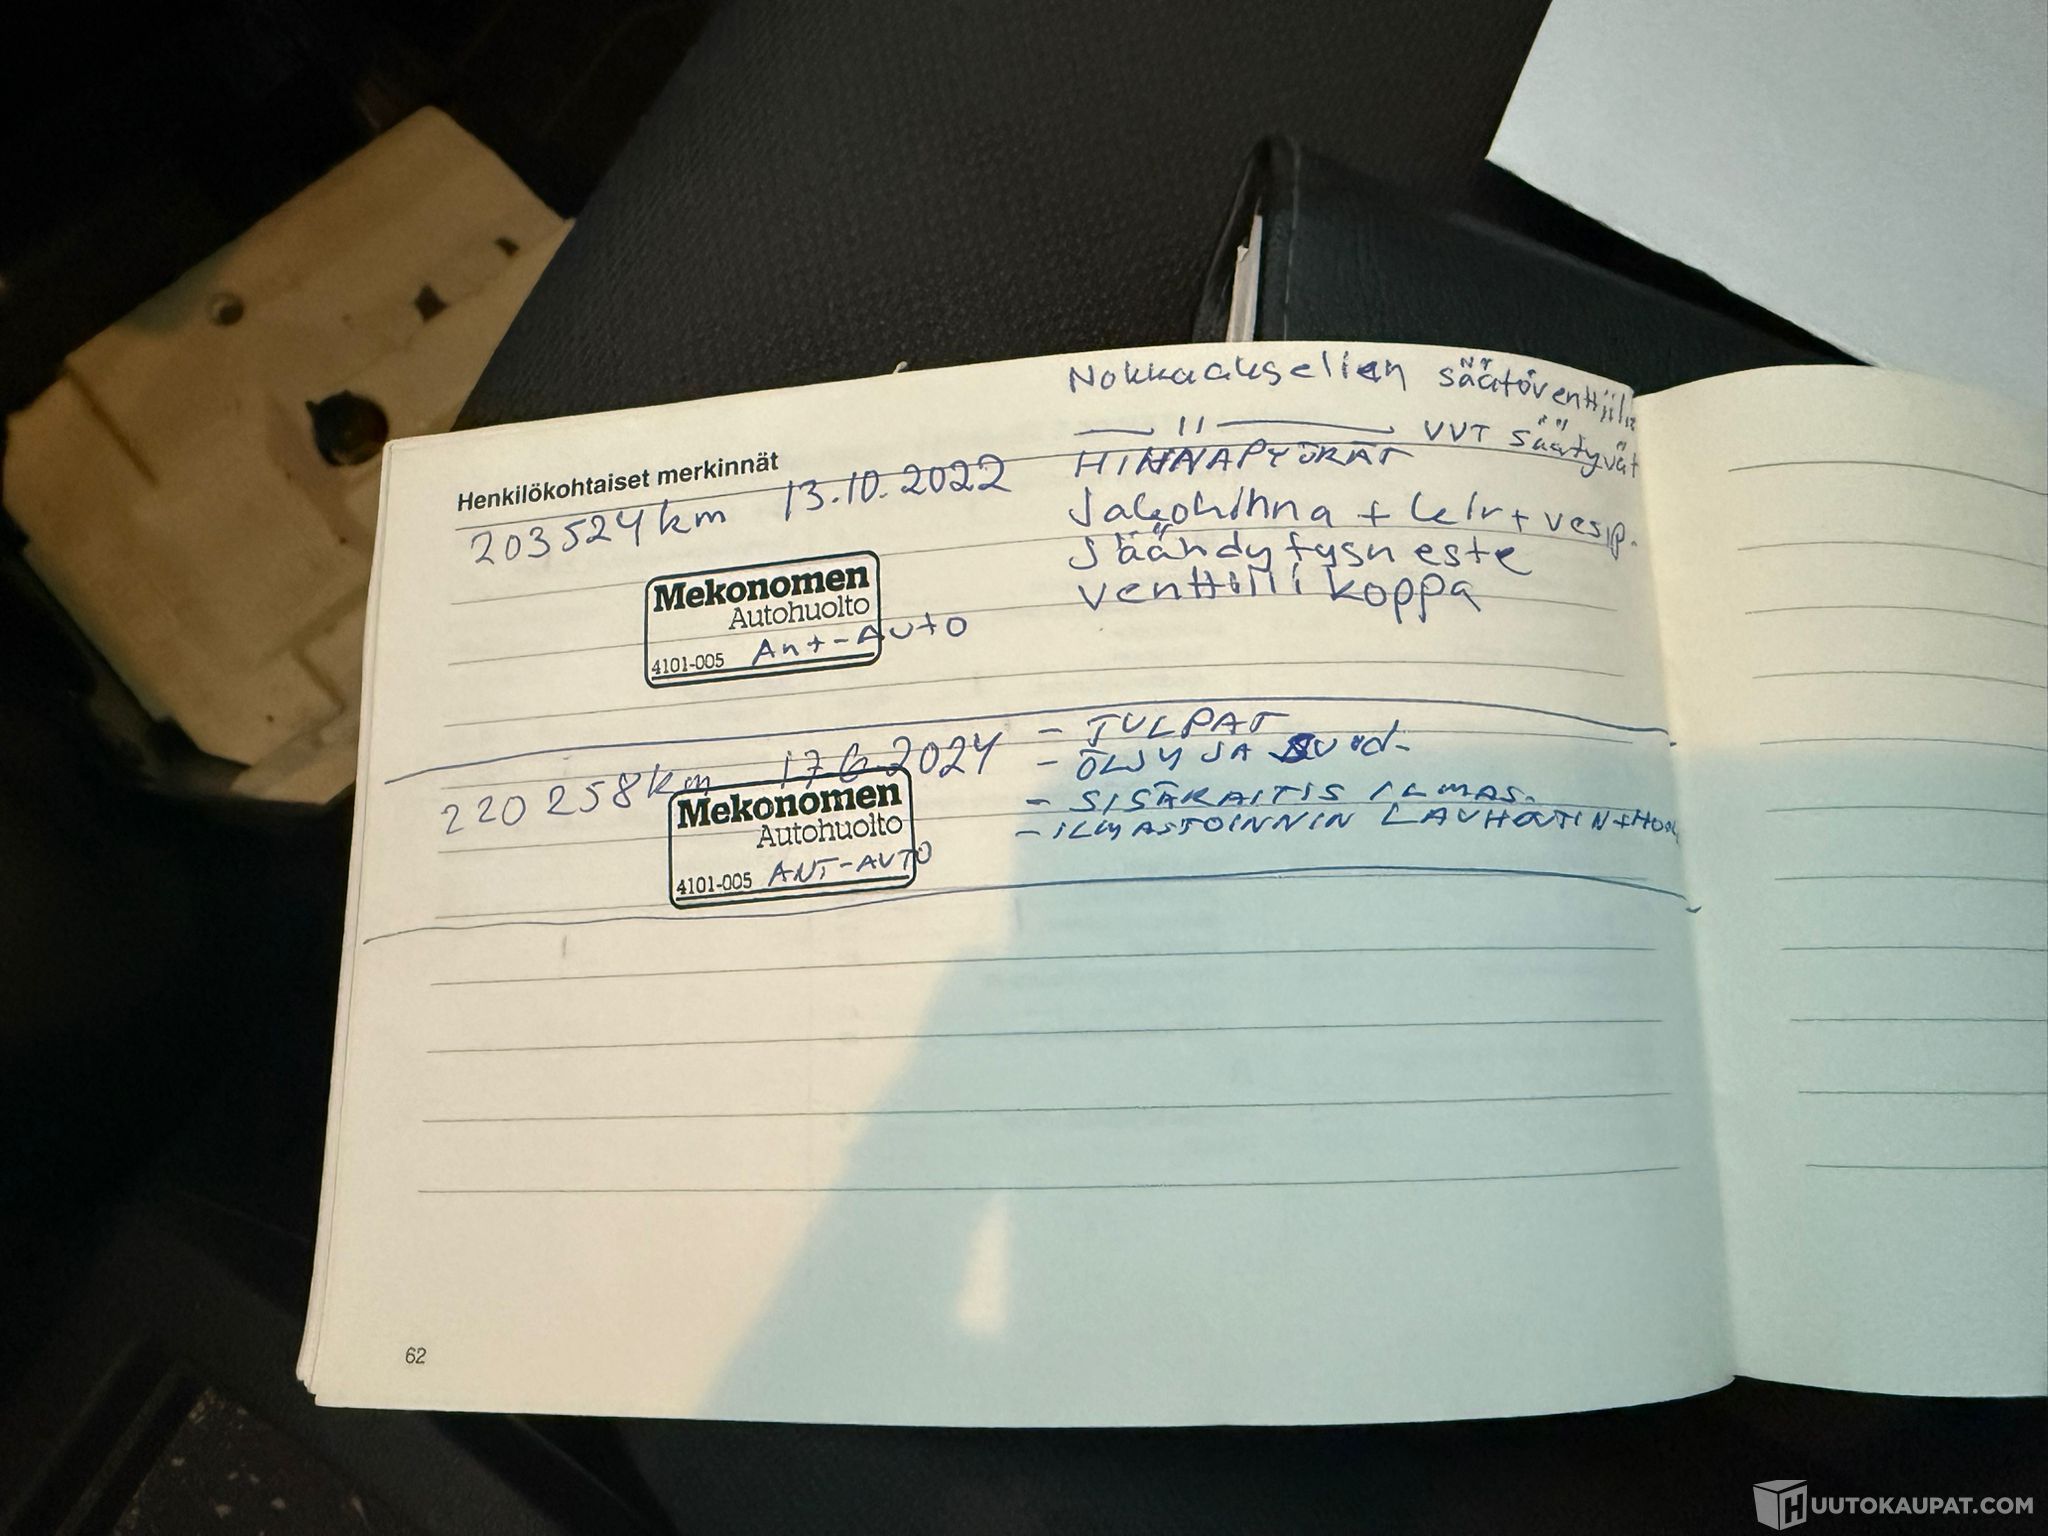 Nokkaakselien säätöventtiili
— 11 — VVT säätyvät
Henkilökohtaiset merkinnät
HIHNAPYÖRÄT
203524 km 13.10.2022
Jakohihna + kelr + vesip.
Jäähdytysneste
Mekonomen
Autohuolto
venttiilikoppa
4101-005 Ant-Auto
- TULPAT
- ÖLJY JA suod.
220 258 km 17 6 2024
- SISÄRAITIS ILMAS.
Mekonomen
Autohuolto
- ILMASTOINNIN LAUHDUTIN +
4101-005 ANT-AUTO
62
HUUTOKAUPAT.COM